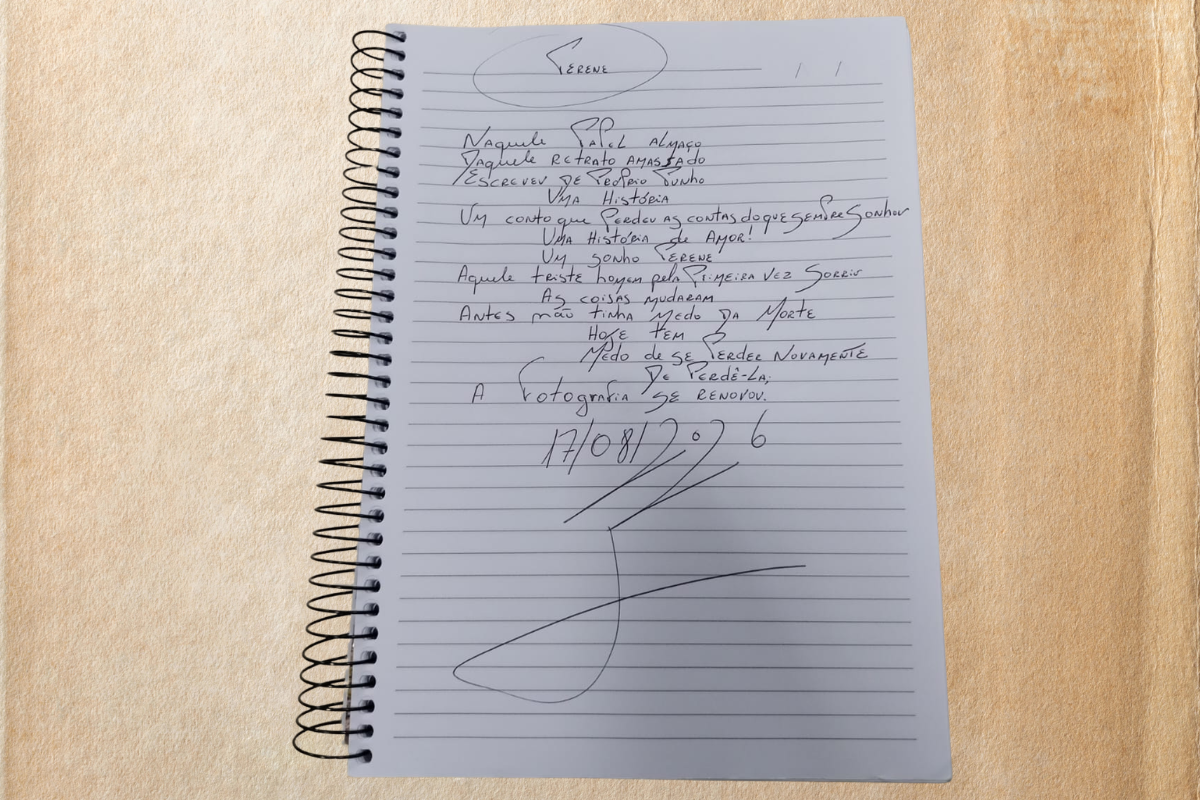 Perene
/ /
Naquele Papel Almaço
Daquele Retrato Amassado
Escreveu de Próprio Punho
Uma História
Um conto que Perdeu as contas do que sempre Sonhou
Uma História de Amor!
Um sonho Perene
Aquele triste homem pela Primeira vez Sorriu
As coisas mudaram
Antes não tinha medo da Morte
Hoje tem
Medo de se Perder Novamente
De Perdê-la;
A Fotografia se renovou.
17/08/2026